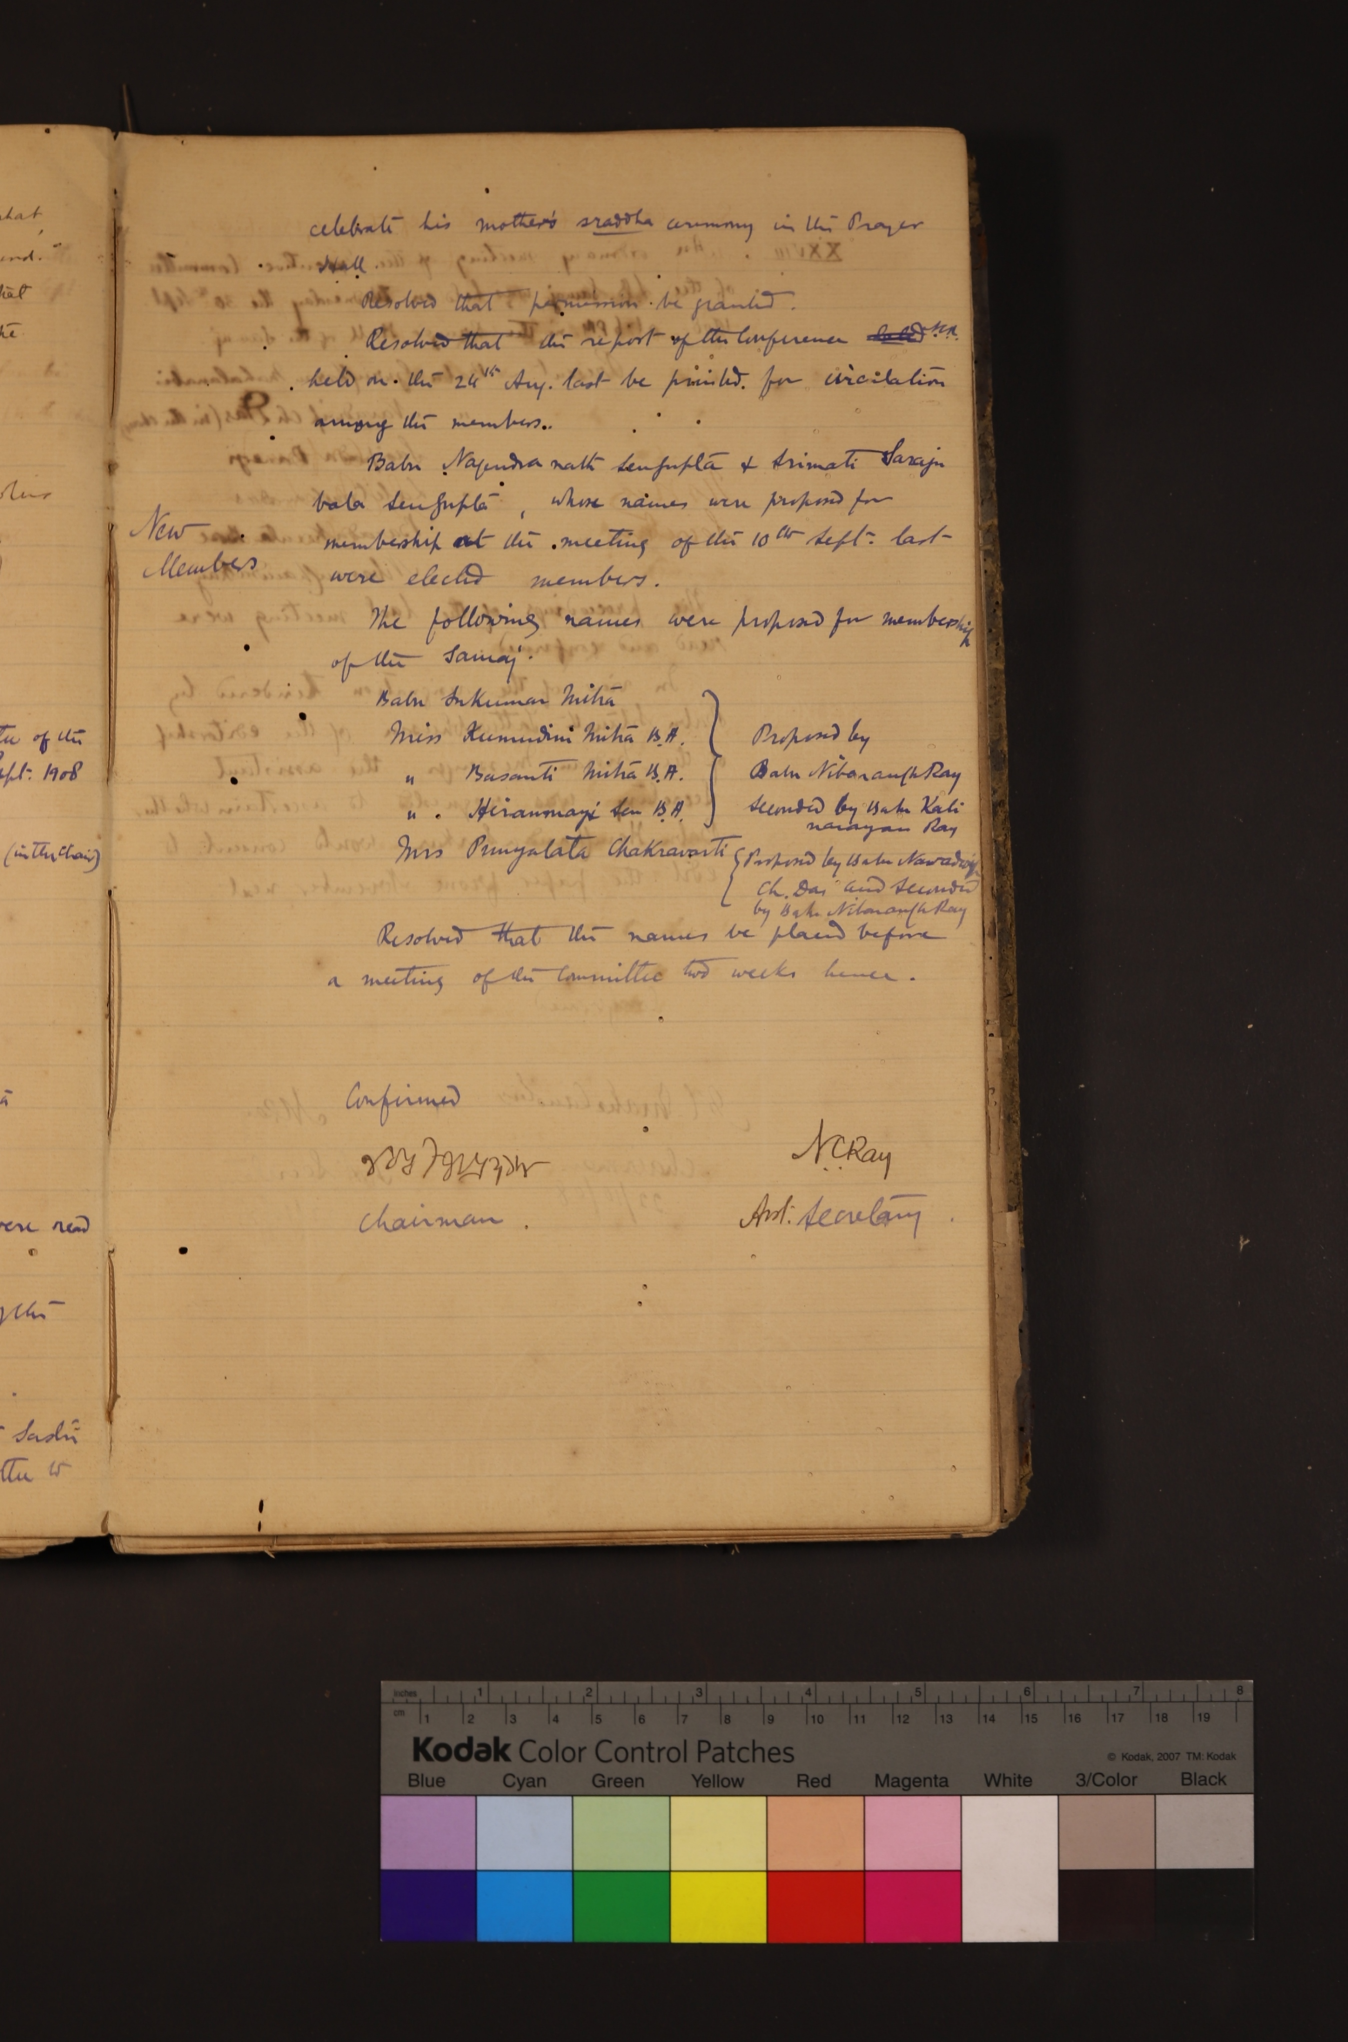 celebrate his mother's sraddha ceremony in the Prayer
Hall.
Resolved that permission be granted.
Resolved that the report of the Conference
held on the 24th Aug. last be printed for circulation
among the members.
Babu Nagendra nath Sengupta & Srimati Saraju
bala Sengupta, whose names were proposed for
New
Members
membership at the meeting of the 10th Sept. last
were elected members.
The following names were proposed for membership
of the Samaj.
Babu Sukumar Mitra
Miss Kumudini Mitra B.A.
" Basanti Mitra B.A.
" Hiranmayi Sen B.A.
Proposed by
Babu Nibaranch Ray
Seconded by Babu Kali
narayan Ray
Mrs Punyalata Chakravarti
Proposed by Babu Nawadwip
Ch. Das and Seconded
by Babu Nibaranch Ray
Resolved that the names be placed before
a meeting of the Committee two weeks hence.
Confirmed
Chairman.
N.C. Ray
Asst. Secretary.
that
te of the
Sept. 1908
(in the chair)
were read
Inches 1 2 3 4 5 6 7 8
cm 1 2 3 4 5 6 7 8 9 10 11 12 13 14 15 16 17 18 19
Kodak Color Control Patches
© Kodak, 2007 TM: Kodak
Blue Cyan Green Yellow Red Magenta White 3/Color Black